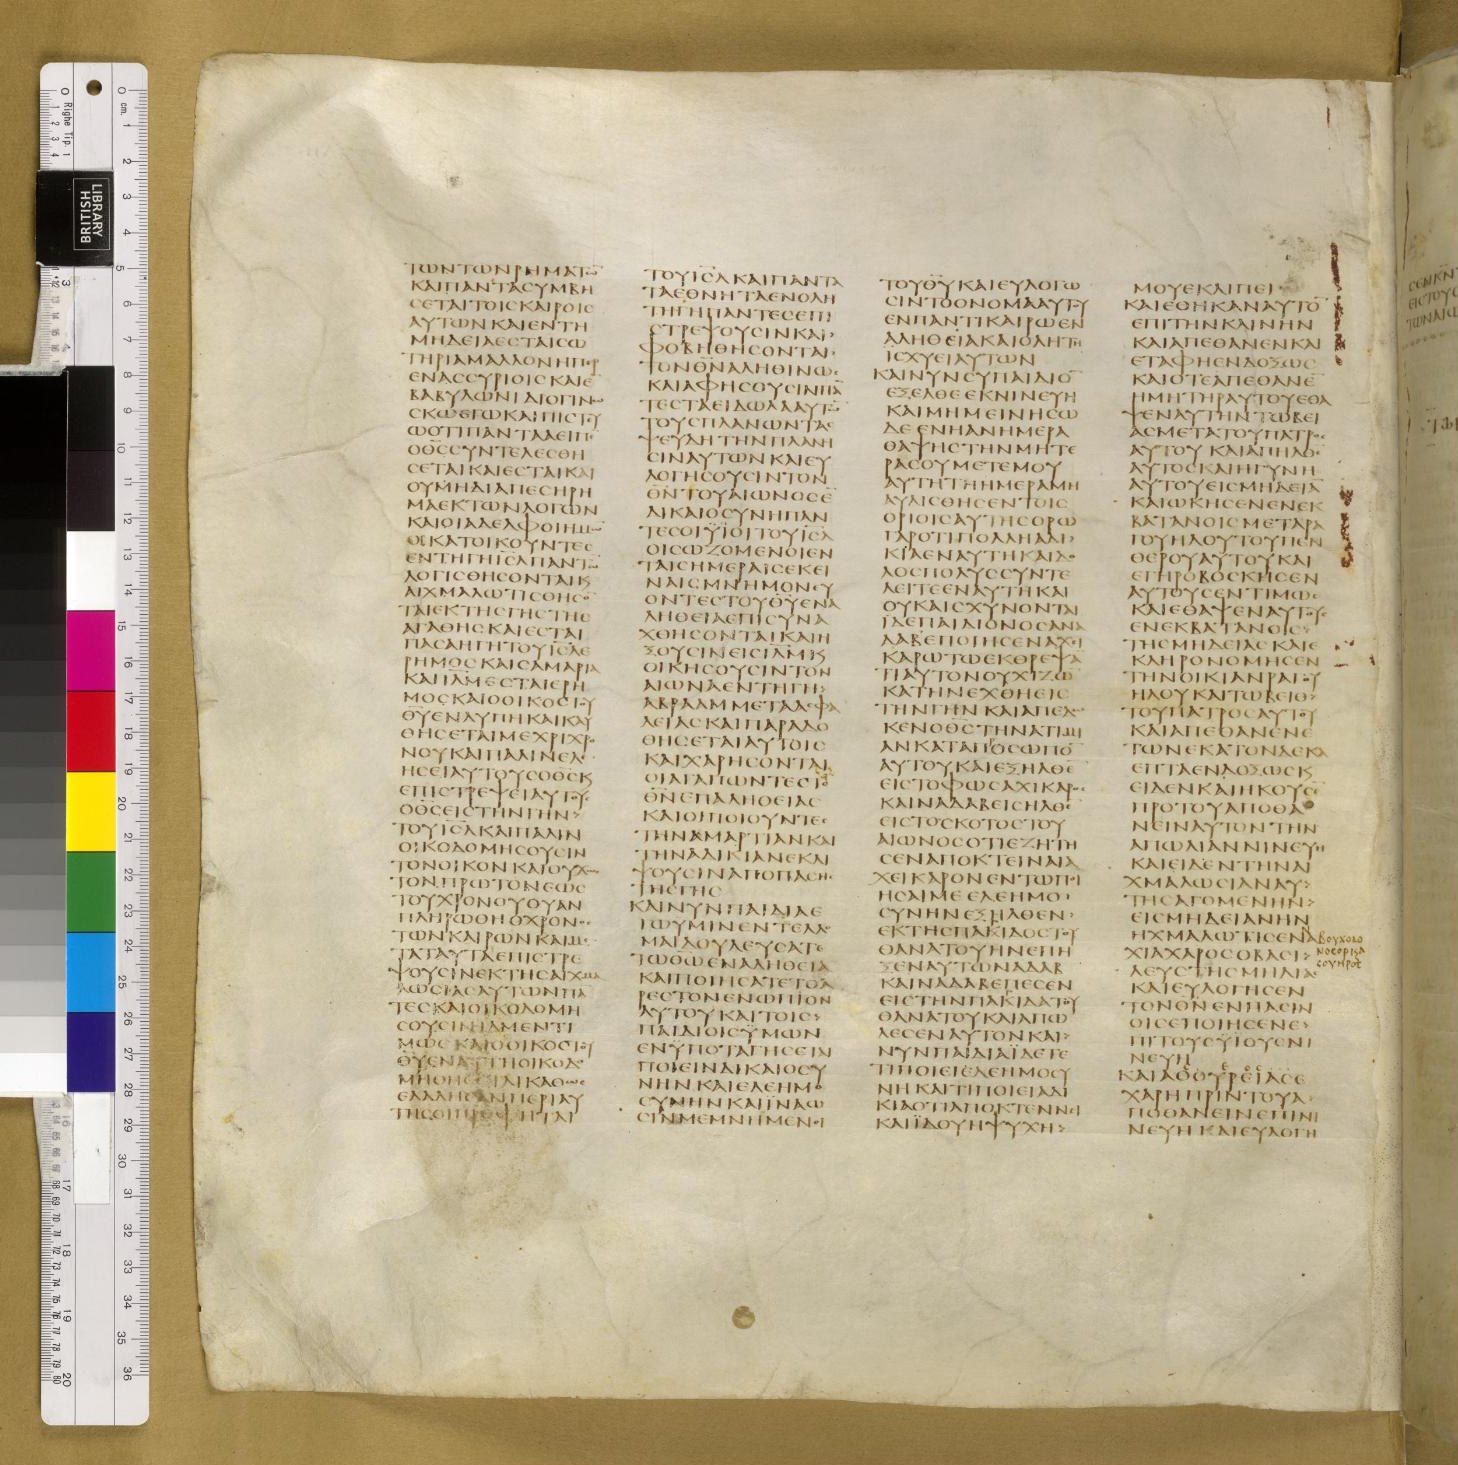 ΤΩΝΤΩΝΡΗΜΑΤΩ̅
ΚΑΙΠΑΝΤΑϹΥΜΒΗ
ϹΕΤΑΙΤΟΙϹΚΑΙΡΟΙϹ
ΑΥΤΩΝΚΑΙΕΝΤΗ
ΜΗΔΕΙΑΕϹΤΑΙϹΩ
ΤΗΡΙΑΜΑΛΛΟΝΗΠΕΡ
ΕΝΑϹϹΥΡΙΟΙϹΚΑΙΕ̅
ΒΑΒΥΛΩΝΙΔΙΟΓΙΝΩ
ϹΚΩΕΓΩΚΑΙΠΙϹΤΕΥ
ΩΟΤΙΠΑΝΤΑΑΕΙΠΕ
ΟΘ̅Ϲ̅ϹΥΝΤΕΛΕϹΘΗ
ϹΕΤΑΙΚΑΙΕϹΤΑΙΚΑΙ
ΟΥΜΗΔΙΑΠΕϹΗΡΗ
ΜΑΕΚΤΩΝΛΟΓΩΝ
ΚΑΙΟΙΑΔΕΛΦΟΙΗΜΩ̅
ΟΙΚΑΤΟΙΚΟΥΝΤΕϹ
ΕΝΤΗΓΗΙ̅Ϲ̅Λ̅ΠΑΝΤΕϹ
ΛΟΓΙϹΘΗϹΟΝΤΑΙΚ
ΑΙΧΜΑΛΩΤΙϹΘΗϹΟ̅
ΤΑΙΕΚΤΗϹΓΗϹΤΗϹ
ΑΓΑΘΗϹΚΑΙΕϹΤΑΙ
ΠΑϹΑΗΓΗΤΟΥΙ̅Ϲ̅Λ̅Ε
ΡΗΜΟϹΚΑΙϹΑΜΑΡΙΑ
ΚΑΙΙ̅Λ̅Μ̅ΕϹΤΑΙΕΡΗ
ΜΟϹΚΑΙΟΟΙΚΟϹΤΟΥ
Θ̅Υ̅ΕΝΛΥΠΗΚΑΙΚΑΥ
ΘΗϹΕΤΑΙΜΕΧΡΙΧΡΟ
ΝΟΥΚΑΙΠΑΛΙΝΕΛΕ
ΗϹΕΙΑΥΤΟΥϹΟΘ̅Ϲ̅Κ
ΕΠΙϹΤΡΕΨΕΙΑΥΤΟΥϹ
ΟΘ̅Ϲ̅ΕΙϹΤΗΝΓΗΝ
ΤΟΥΙ̅Ϲ̅Λ̅ΚΑΙΠΑΛΙΝ
ΟΙΚΟΔΟΜΗϹΟΥϹΙΝ
ΤΟΝΟΙΚΟΝΚΑΙΟΥΧΩϹ
ΤΟΝΠΡΩΤΟΝΕΩϹ
ΤΟΥΧΡΟΝΟΥΟΥΑΝ
ΠΛΗΡΩΘΗΟΧΡΟΝΟϹ
ΤΩΝΚΑΙΡΩΝΚΑΙΜΕ
ΤΑΤΑΥΤΑΕΠΙϹΤΡΕ
ΨΟΥϹΙΝΕΚΤΗϹΑΙΧΜΑ
ΛΩϹΙΑϹΑΥΤΩΝΠΑ̅
ΤΕϹΚΑΙΟΙΚΟΔΟΜΗ
ϹΟΥϹΙΝΙ̅Λ̅Μ̅ΕΝΤΙ
ΜΩϹΚΑΙΟΟΙΚΟϹΤΟΥ
Θ̅Υ̅ΕΝΑΥΤΗΟΙΚΟΔΟ
ΜΗΘΗϹΕΤΑΙΚΑΘΩϹ
ΕΛΑΛΗϹΑΝΠΕΡΙΑΥ
ΤΗϹΟΙΠΡΟΦΗΤΑΙ
ΤΟΥΙ̅Ϲ̅Λ̅ΚΑΙΠΑΝΤΑ
ΤΑΕΘΝΗΤΑΕΝΟΛΗ
ΤΗΓΗΠΑΝΤΕϹΕΠΙ
ϹΤΡΕΨΟΥϹΙΝΚΑΙ
ΦΟΒΗΘΗϹΟΝΤΑΙ
ΤΟΝΘ̅Ν̅ΑΛΗΘΙΝΩϹ
ΚΑΙΑΦΗϹΟΥϹΙΝΠΑ̅
ΤΕϹΤΑΕΙΔΩΛΑΑΥΤΩ̅
ΤΟΥϹΠΛΑΝΩΝΤΑϹ
ΨΕΥΔΗΤΗΝΠΛΑΝΗ
ϹΙΝΑΥΤΩΝΚΑΙΕΥ
ΛΟΓΗϹΟΥϹΙΝΤΟΝ
Θ̅Ν̅ΤΟΥΑΙΩΝΟϹΕ̅
ΔΙΚΑΙΟϹΥΝΗΠΑΝ
ΤΕϹΟΙΫΙΟΙΤΟΥΙ̅Ϲ̅Λ̅
ΟΙϹΩΖΟΜΕΝΟΙΕΝ
ΤΑΙϹΗΜΕΡΑΙϹΕΚΕΙ
ΝΑΙϹΜΝΗΜΟΝΕΥ
ΟΝΤΕϹΤΟΥΘ̅Υ̅ΕΝΑ
ΛΗΘΕΙΑΕΠΙϹΥΝΑ
ΧΘΗϹΟΝΤΑΙΚΑΙΗ
ΞΟΥϹΙΝΕΙϹΙ̅Λ̅Μ̅Κ
ΟΙΚΗϹΟΥϹΙΝΤΟΝ
ΑΙΩΝΑΕΝΤΗΓΗ
ΑΒΡΑΑΜΜΕΤΑΑϹΦΑ
ΛΕΙΑϹΚΑΙΠΑΡΑΔΟ
ΘΗϹΕΤΑΙΑΥΤΟΙϹ
ΚΑΙΧΑΡΗϹΟΝΤΑΙ
ΟΙΑΓΑΠΩΝΤΕϹΤΟ̅
Θ̅Ν̅ΕΠΑΛΗΘΕΙΑϹ
ΚΑΙΟΙΠΟΙΟΥΝΤΕϹ
ΤΗΝΑΜΑΡΤΙΑΝΚΑΙ
ΤΗΝΑΔΙΚΙΑΝΕΚΛΙ
ΨΟΥϹΙΝΑΠΟΠΑϹΗϹ
ΤΗϹΓΗϹ
ΚΑΙΝΥΝΠΑΙΔΙΑΕ
ΓΩΥΜΙΝΕΝΤΕΛΛΟ
ΜΑΙΔΟΥΛΕΥϹΑΤΕ
ΤΩΘ̅Ω̅ΕΝΑΛΗΘΕΙΑ
ΚΑΙΠΟΙΗϹΑΤΕΤΟΑ
ΡΕϹΤΟΝΕΝΩΠΙΟΝ
ΑΥΤΟΥΚΑΙΤΟΙϹ
ΠΑΙΔΙΟΙϹΫΜΩΝ
ΕΝΫΠΟΤΑΓΗϹΕΤΑΙ
ΠΟΙΕΙΝΔΙΚΑΙΟϹΥ
ΝΗΝΚΑΙΕΛΕΗΜΟ
ϹΥΝΗΝΚΑΙΪΝΑΩ
ϹΙΝΜΕΜΝΗΜΕΝΟΙ
ΤΟΥΘ̅Υ̅ΚΑΙΕΥΛΟΓΩ
ϹΙΝΤΟΟΝΟΜΑΑΥΤΟΥ
ΕΝΠΑΝΤΙΚΑΙΡΩΕΝ
ΑΛΗΘΕΙΑΚΑΙΟΛΗΤΗ
ΪϹΧΥΕΙΑΥΤΩΝ
ΚΑΙΝΥΝϹΥΠΑΙΔΙΟ̅
ΕΞΕΛΘΕΕΚΝΙΝΕΥΗ
ΚΑΙΜΗΜΕΙΝΗϹΩ
ΔΕΕΝΗΑΝΗΜΕΡΑ
ΘΑΨΗϹΤΗΝΜΗΤΕ
ΡΑϹΟΥΜΕΤΕΜΟΥ
ΑΥΤΗΤΗΗΜΕΡΑΜΗ
ΑΥΛΙϹΘΗϹΕΝΤΟΙϹ
ΟΡΙΟΙϹΑΥΤΗϹΟΡΩ
ΓΑΡΟΤΙΠΟΛΛΗΑΔΙ
ΚΙΑΕΝΑΥΤΗΚΑΙΔΟ
ΛΟϹΠΟΛΥϹϹΥΝΤΕ
ΛΕΙΤΕΕΝΑΥΤΗΚΑΙ
ΟΥΚΑΙϹΧΥΝΟΝΤΑΙ
ΪΔΕΠΑΙΔΙΟΝΟϹΑΝΑ
ΔΑΒΕΠΟΙΗϹΕΝΑΧΕΙ
ΚΑΡΩΤΩΕΚΘΡΕΨΑ̅
ΤΙΑΥΤΟΝΟΥΧΙΖΩ̅
ΚΑΤΗΝΕΧΘΗΕΙϹ
ΤΗΝΓΗΝΚΑΙΑΠΕΔΩ
ΚΕΝΟΘ̅Ϲ̅ΤΗΝΑΤΙΜΙ
ΑΝΚΑΤΑΠΡΟϹΩΠΟ̅
ΑΥΤΟΥΚΑΙΕΞΗΛΘΕ̅
ΕΙϹΤΟΦΩϹΑΧΙΚΑΡΟϹ
ΚΑΙΝΑΔΑΒΕΙϹΗΛΘΕ̅
ΕΙϹΤΟϹΚΟΤΟϹΤΟΥ
ΑΙΩΝΟϹΟΤΙΕΖΗΤΗ
ϹΕΝΑΠΟΚΤΕΙΝΑΙΑ
ΧΕΙΚΑΡΟΝΕΝΤΩΠΟΙ
ΗϹΑΙΜΕΕΛΕΗΜΟ
ϹΥΝΗΝΕΞΗΛΘΕΝ
ΕΚΤΗϹΠΑΓΙΔΟϹΤΟΥ
ΘΑΝΑΤΟΥΗΝΕΠΗ
ΞΕΝΑΥΤΩΝΑΔΑΒ
ΚΑΙΝΑΔΑΒΕΠΕϹΕΝ
ΕΙϹΤΗΝΠΑΓΙΔΑΤΟΥ
ΘΑΝΑΤΟΥΚΑΙΑΠΩ
ΛΕϹΕΝΑΥΤΟΝΚΑΙ
ΝΥΝΠΑΙΔΙΑΪΔΕΤΕ
ΤΙΠΟΙΕΙΕΛΕΗΜΟϹΥ
ΝΗΚΑΙΤΙΠΟΙΕΙΑΔΙ
ΚΙΑΟΤΙΑΠΟΚΤΕΝΝΕΙ
ΚΑΙΪΔΟΥΗΨΥΧΗ
ΜΟΥΕΚΛΙΠΕΙ
ΚΑΙΕΘΗΚΑΝΑΥΤΟ̅
ΕΠΙΤΗΝΚΛΙΝΗΝ
ΚΑΙΑΠΕΘΑΝΕΝΚΑΙ
ΕΤΑΦΗΕΝΔΟΞΩϹ
ΚΑΙΟΤΕΑΠΕΘΑΝΕ̅
ΗΜΗΤΗΡΑΥΤΟΥΕΘΑ
ΨΕΝΑΥΤΗΝΤΩΒΕΙ
ΑϹΜΕΤΑΤΟΥΠΑΤΡΟϹ
ΑΥΤΟΥΚΑΙΑΠΗΛΘΕ̅
ΑΥΤΟϹΚΑΙΗΓΥΝΗ
ΑΥΤΟΥΕΙϹΜΗΔΕΙΑ̅
ΚΑΙΩΚΗϹΕΝΕΝΕΚ
ΒΑΤΑΝΟΙϹΜΕΤΑΡΑ
ΓΟΥΗΛΟΥΤΟΥΠΕΝ
ΘΕΡΟΥΑΥΤΟΥΚΑΙ
ΕΓΗΡΟΒΟϹΚΗϹΕΝ
ΑΥΤΟΥϹΕΝΤΙΜΩϹ
ΚΑΙΕΘΑΨΕΝΑΥΤΟΥϹ
ΕΝΕΚΒΑΤΑΝΟΙϹ
ΤΗϹΜΗΔΕΙΑϹΚΑΙΕ
ΚΛΗΡΟΝΟΜΗϹΕΝ
ΤΗΝΟΙΚΙΑΝΡΑΓΟΥ
ΗΛΟΥΚΑΙΤΩΒΕΙΘ
ΤΟΥΠΑΤΡΟϹΑΥΤΟΥ
ΚΑΙΑΠΕΘΑΝΕΝΕ
ΤΩΝΕΚΑΤΟΝΔΕΚΑ
ΕΠΤΑΕΝΔΟΞΩϹΚ
ΕΙΔΕΝΚΑΙΗΚΟΥϹΕ̅
ΠΡΟΤΟΥΑΠΟΘΑ
ΝΕΙΝΑΥΤΟΝΤΗΝ
ΑΠΩΛΙΑΝΝΙΝΕΥΗ
ΚΑΙΕΙΔΕΝΤΗΝΑΙ
ΧΜΑΛΩϹΙΑΝΑΥ
ΤΗϹΑΓΟΜΕΝΗΝ
ΕΙϹΜΗΔΕΙΑΝΗΝ
ΗΧΜΑΛΩΤΙϹΕΝΑ
ΧΙΑΧΑΡΟϹΟΒΑϹΙ
ΛΕΥϹΤΗϹΜΗΔΙΑϹ
ΚΑΙΕΥΛΟΓΗϹΕΝ
ΤΟΝΘ̅Ν̅ΕΝΠΑϹΙΝ
ΟΙϹΕΠΟΙΗϹΕΝΕ
ΠΙΤΟΥϹΥΙΟΥϹΝΙ
ΝΕΥΗ
ΧΑΡΗΠΡΙΝΤΟΥΑ
ΠΟΘΑΝΕΙΝΕΠΙΝΙ
ΝΕΥΗΚΑΙΕΥΛΟΓΗ